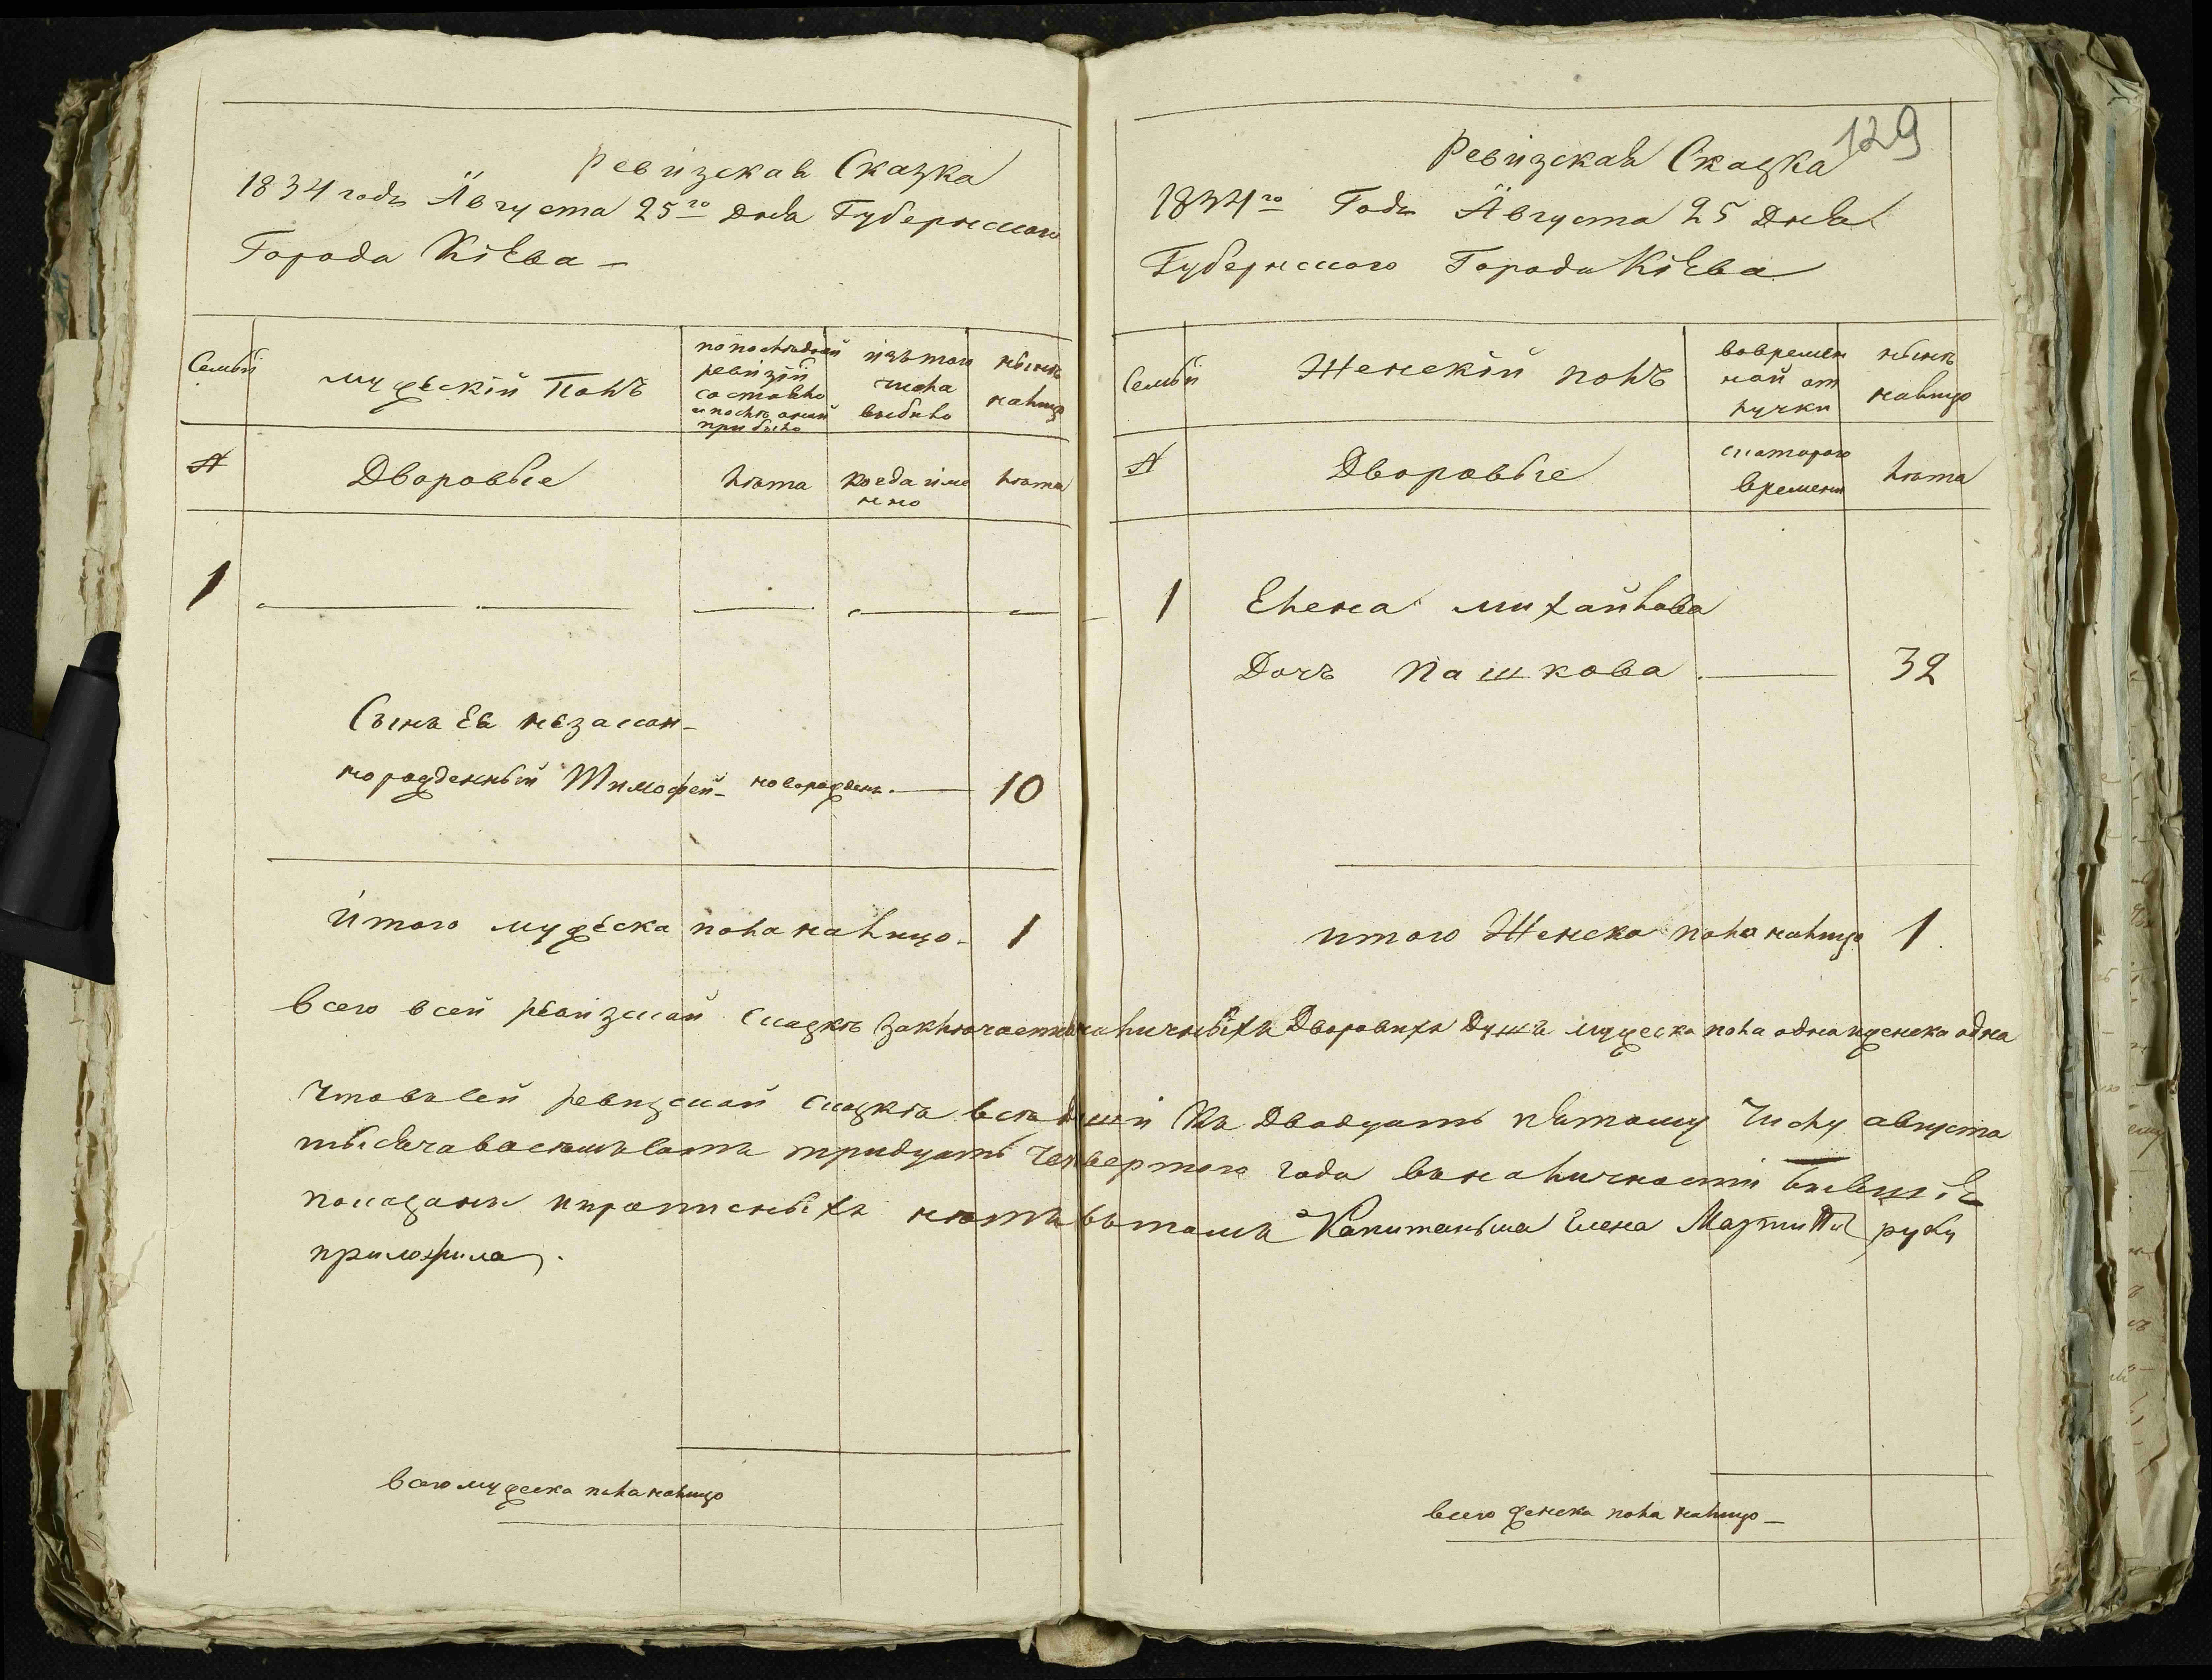 Ревизская Сказка
1834 года Августа 25го дня Губернского
Города Кіева –
Семьи
мужескій Полъ
по последней
ревизіи
состояло
и после оной
прибыло
изъ того
числа
выбыло
ныне
налицо
№
Дворовые
лета
когда име
нно
лета
1
Сынъ Ея незакон-
норожденный Тимофей – новорожден. — 10
итого мужеска пола налицо – 1
129
Ревизская Сказка
1834го Года Августа 25 Дня
Губернского Города Кіева
Семьи
Женскій полъ
вовремен
ной от
лучки
ныне
налицо
№
Дворовые
скоторого
времени
лета
1 Елена михайлова
Дочь пашкова — 32
итого Женска пола налицо 1.
всего всей ревизской сказке заключается наличныхъ Дворовихъ Душъ мужеска пола одна иженска одна
Что въ сей ревизской сказке вся дши къ Двадцать пятому Числу августа
тысяча восемъ сотъ тридцать четвертого года въ наличности бывшіе
показани и прописныхъ нетъ въ томъ Капитанъша Елена руку
приложила.
всего мужеска пола налицо
всего женска пола налицо –